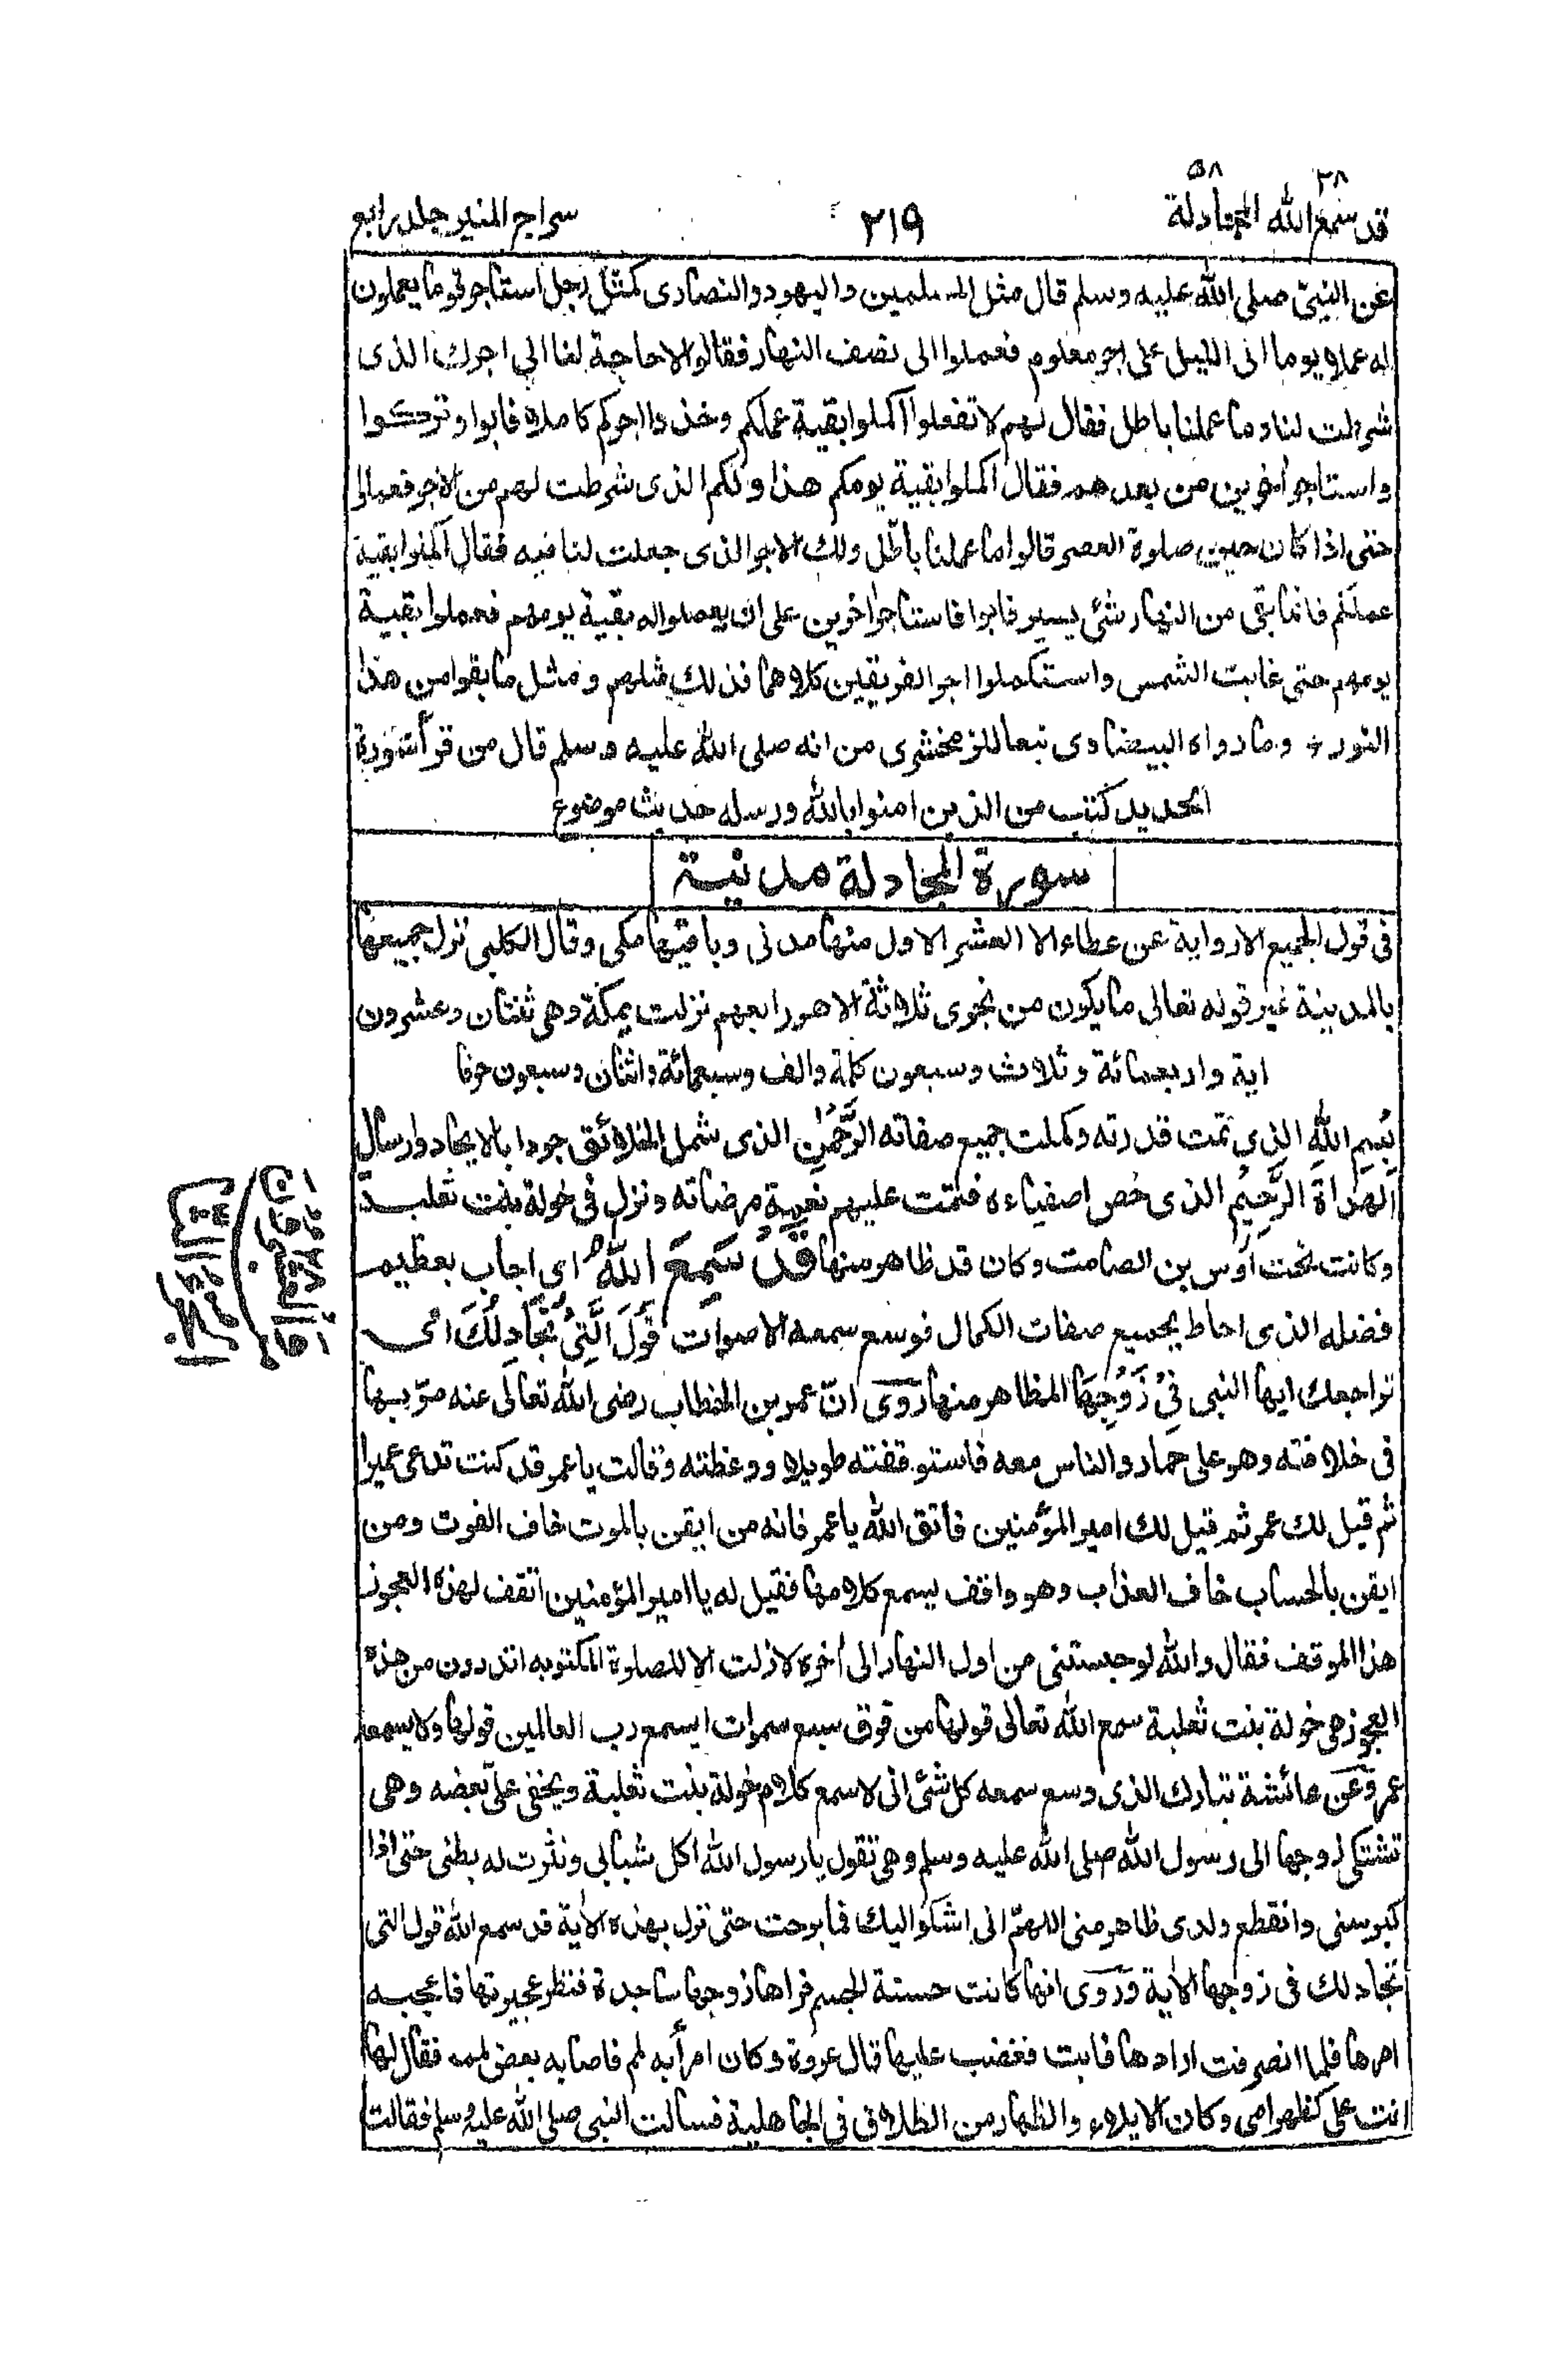 ٢٨ ٥٨
قد سمع الله المجادلة ٢١٩ سراج المنير جلد رابع
عن النبيّ صلى الله عليه وسلم قال مثل المسلمين واليهود والنصارى كمثل رجل استاجر قوما يعملون
له عملا يوما الى الليل على اجر معلوم فعملوا الى نصف النهار فقالوا لا حاجة لنا الى اجرك الذى
شرطت لنا وما عملنا باطل فقال لهم لا تفعلوا اكملوا بقية عملكم وخذوا اجركم كاملا فابوا وتركوا
واستاجر أخرين من بعدهم فقال اكملوا بقية يومكم هذا ولكم الذى شرطت لهم من الاجر فعملوا
حتى اذا كان حين صلوة العصر قالوا ما عملنا باطل ولك الاجر الذى جعلت لنا فيه فقال اكملوا بقية
عملكم فانما بقى من النهار شئ يسير فابوا فاستاجر أخرين على ان يعملوا له بقية يومهم فعملوا بقية
يومهم حتى غابت الشمس واستكملوا اجر الفريقين كلاهما فذلك مثلهم ومثل ما بقوا من هذا
النور ÷ وما رواه البيضاوى تبعا للزمخشرى من انه صلى الله عليه وسلم قال من قرأ سورة
الحديد كتب من الذين امنوا بالله ورسله حديث موضوع
سورة المجادلة مدنية
فى قول الجميع الا رواية عن عطاء الا العشر الاول منها مدنى وباقيها مكى وقال الكلبى نزل جميعها
بالمدينة غير قوله تعالى ما يكون من نجوى ثلاثة الا هو رابعهم نزلت بمكة وهى ثنتان وعشرون
اية واربعمائة وثلاث وسبعون كلمة والف وسبعمائة واثنان وسبعون حرفا
بِسْمِ اللهِ الذى تمت قدرته وكملت جميع صفاته الرَّحْمٰنِ الذى شمل الخلائق جودا بالايجاد وارسال
الهداة الرَّحِيْمِ الذى خص اصفياءه فتمت عليهم نعمة مرضاته ونزل فى خولة بنت ثعلبة
وكانت تحت أوس بن الصامت وكان قد ظاهر منها قَدْ سَمِعَ اللهُ اى اجاب بعظيم
فضله الذى احاط بجميع صفات الكمال فوسع سمعه الاصوات قَوْلَ الَّتِىْ تُجَادِلُكَ اى
تراجعك ايها النبى فِىْ زَوْجِهَا المظاهر منها روى انّ عمر بن الخطاب رضى الله تعالى عنه مرّ بها
فى خلافته وهو على حمار والناس معه فاستوقفته طويلا ووعظته وقالت يا عمر قد كنت تدعى عميرا
ثم قيل لك عمر ثم قيل لك امير المؤمنين فاتق الله يا عمر فانه من ايقن بالموت خاف الفوت ومن
ايقن بالحساب خاف العذاب وهو واقف يسمع كلامها فقيل له يا امير المؤمنين اتقف لهذه العجوز
هذا الموقف فقال والله لو حبستنى من اول النهار الى أخره لا زلت الا للصلوة المكتوبه اتدرون من هذه
العجوز هى خولة بنت ثعلبة سمع الله تعالى قولها من فوق سبع سموات ايسمع رب العالمين قولها ولا يسمعه
عمر وعن عائشة تبارك الذى وسع سمعه كل شئ انى لاسمع كلام خولة بنت ثعلبة ويخفى علىّ بعضه وهى
تشتكى زوجها الى رسول الله صلى الله عليه وسلم وهى تقول يا رسول الله اكل شبابى ونثرت له بطنى حتى اذا
كبر سنى وانقطع ولدى ظاهر منى اللهمّ انى اشكو اليك فما برحت حتى نزل بهذه الاية قد سمع الله قول التى
تجادلك فى زوجها الاية وروى انها كانت حسنة الجسم فراها زوجها ساجدة فنظر عجيزتها فاعجبه
امرها فلما انصرفت ارادها فابت فغضب عليها قال عروة وكان امرأ به لمم فاصابه بعض لممه فقال لها
انت على كظهر امى وكان الايلاء والظهار من الطلاق فى الجاهلية فسالت النبى صلى الله عليه وسلم فقالت